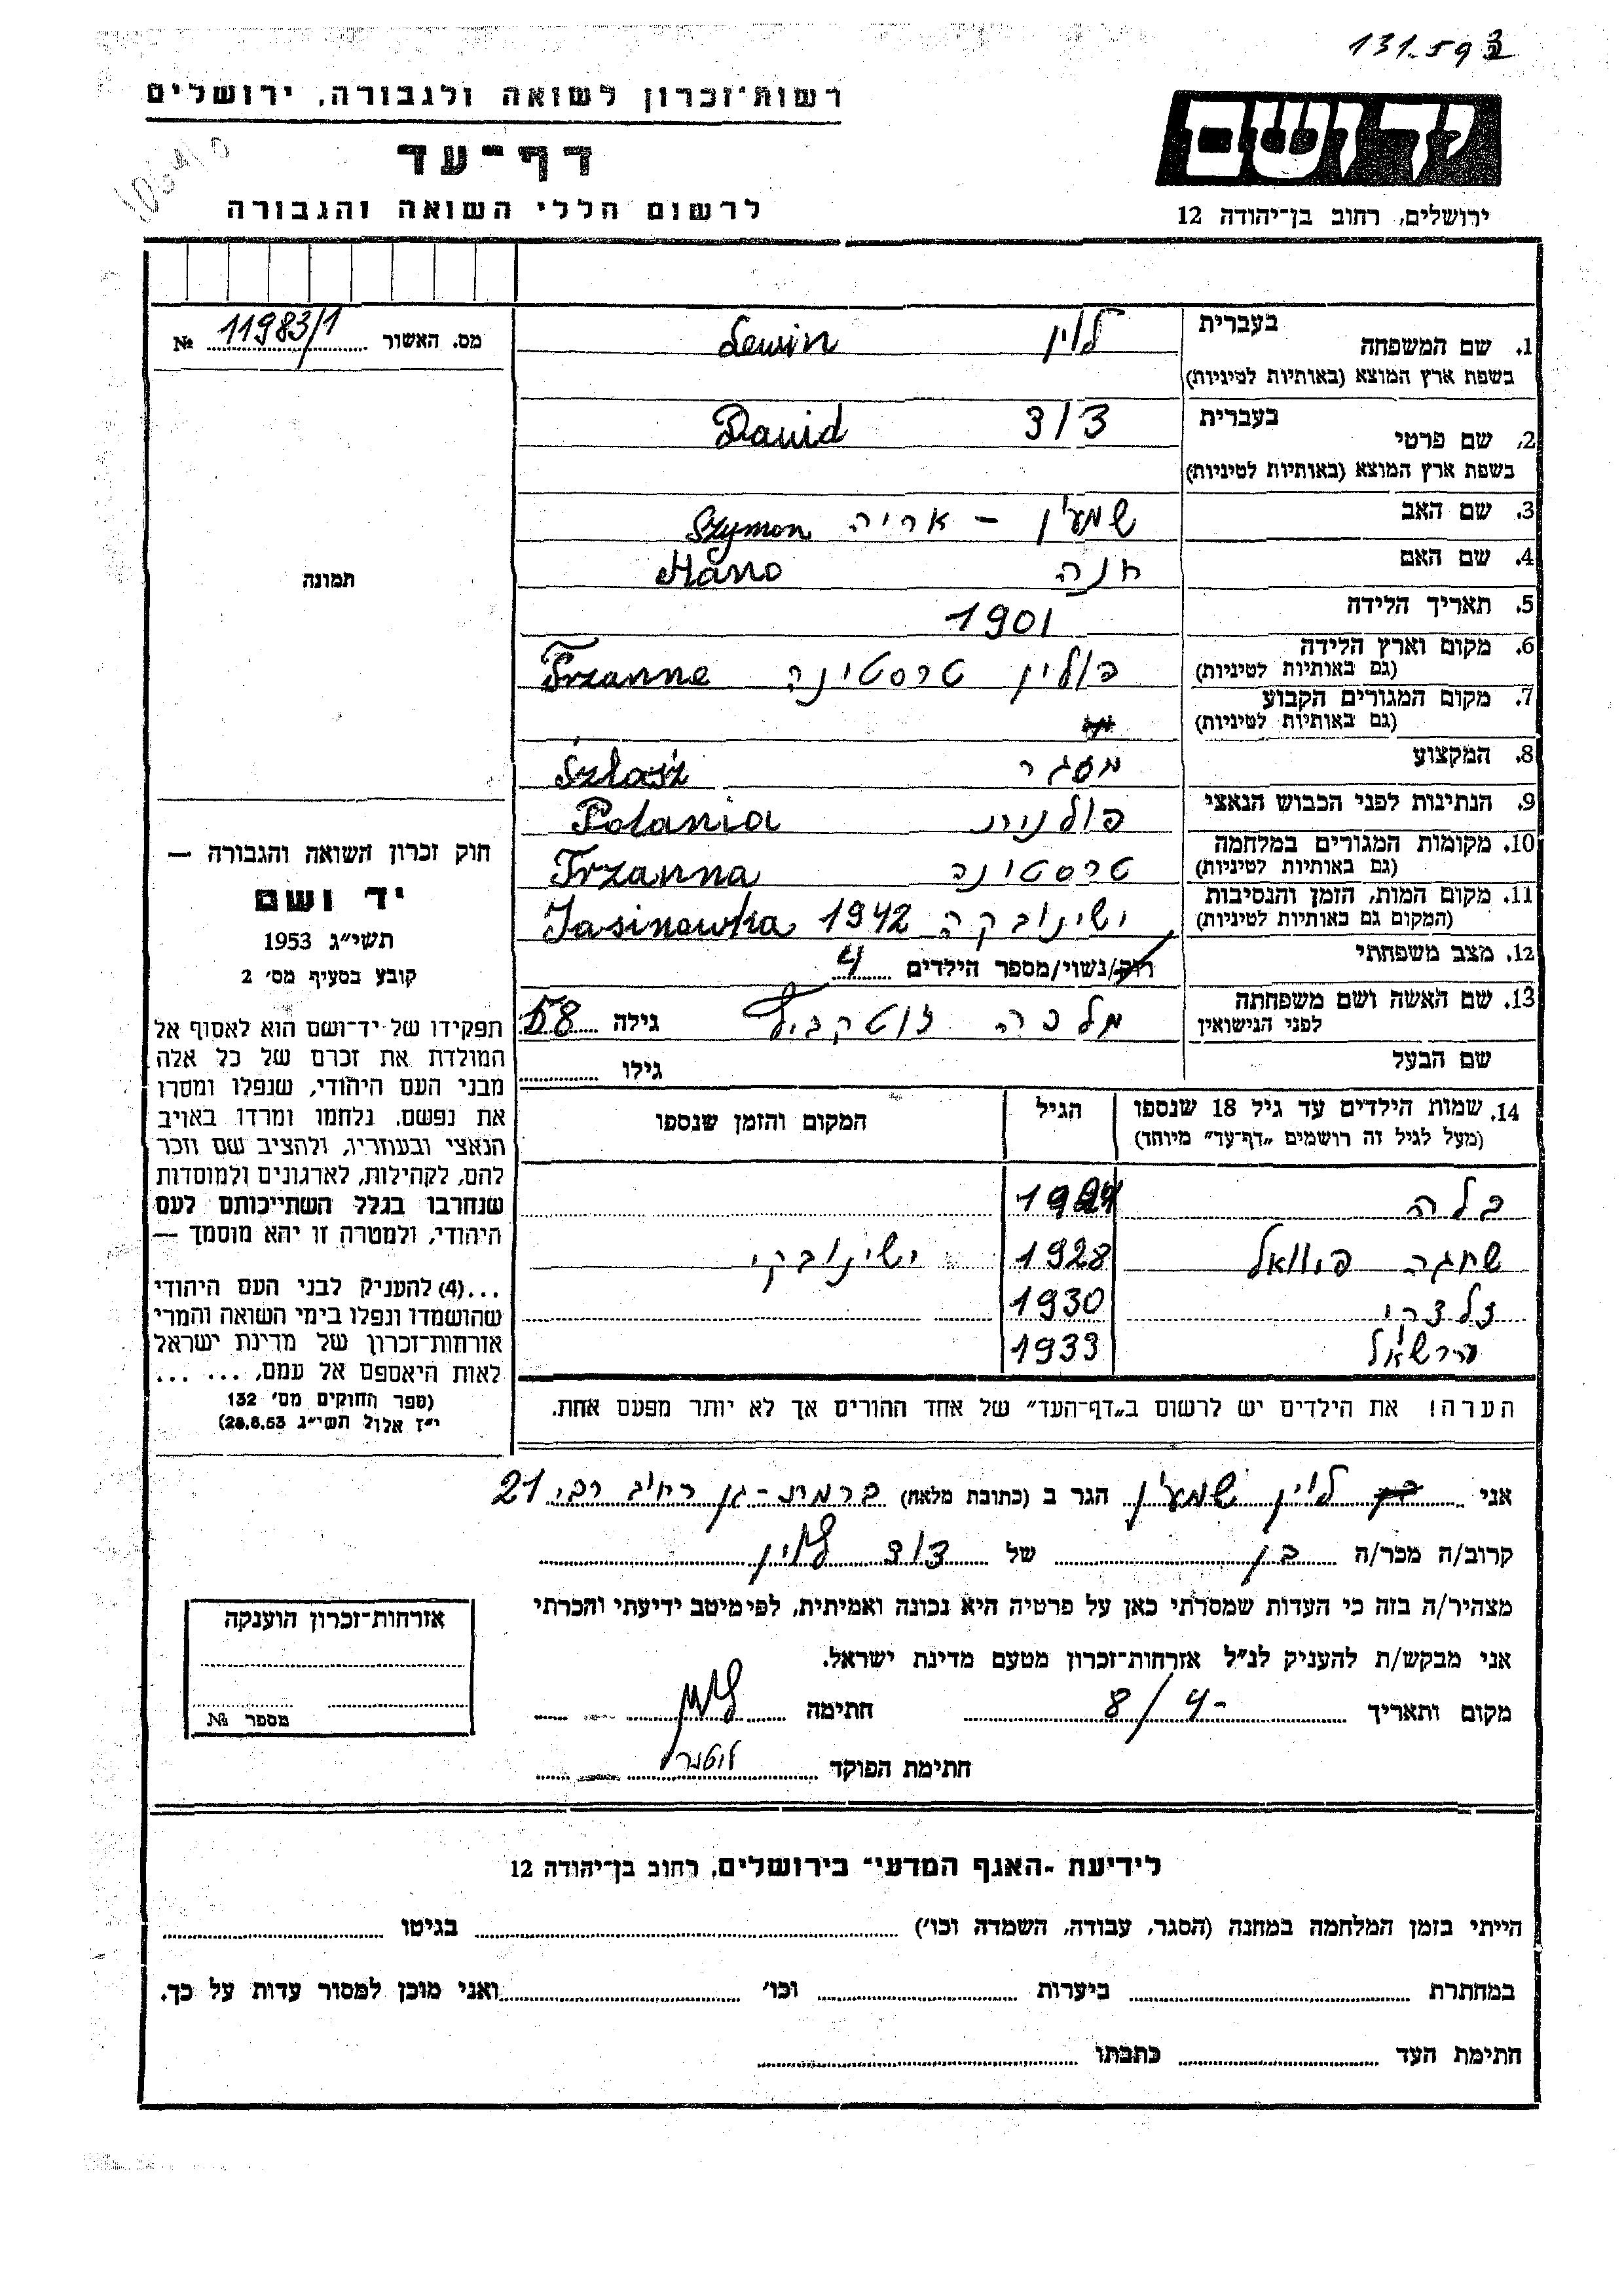 131.593
רשות־זכרון לשואה ולגבורה, ירושלים
דף־עד
לרשום חללי השואה והגבורה
יד ושם
ירושלים, רחוב בן־יהודה 12
מס. האשור 11983/1 №
תמונה
1. שם המשפחה בעברית לוין Lewin
בשפת ארץ המוצא (באותיות לטיניות)
2. שם פרטי בעברית דוד Dawid
בשפת ארץ המוצא (באותיות לטיניות)
3. שם האב שמעון - אריה Szymon
4. שם האם חנה Hano
5. תאריך הלידה 1901
6. מקום וארץ הלידה פולין טרסטינה Trzanne
(גם באותיות לטיניות)
7. מקום המגורים הקבוע
(גם באותיות לטיניות)
8. המקצוע מסגר Szlosz
9. הנתינות לפני הכבוש הנאצי פולנית Polania
10. מקומות המגורים במלחמה טרסטינה Trzanna
(גם באותיות לטיניות)
11. מקום המות, הזמן והנסיבות ישינובקה 1942 Jasinowka
(המקום גם באותיות לטיניות)
12. מצב משפחתי רוק/נשוי/מספר הילדים 4
13. שם האשה ושם משפחתה מלכה גילה 58
לפני הנישואין
שם הבעל גילו
14. שמות הילדים עד גיל 18 שנספו הגיל המקום והזמן שנספו
(מעל לגיל זה רושמים "דף־עד" מיוחד)
בלה 1924
1928 ישינובקי
1930
1933
הערה! את הילדים יש לרשום ב"דף־העד" של אחד ההורים אך לא יותר מפעם אחת.
חוק זכרון השואה והגבורה —
יד ושם
תשי"ג 1953
קובע בסעיף מס' 2
תפקידו של יד־ושם הוא לאסוף אל
המולדת את זכרם של כל אלה
מבני העם היהודי, שנפלו ומסרו
את נפשם, נלחמו ומרדו באויב
הנאצי ובעוזריו, ולהציב שם וזכר
להם, לקהילות, לארגונים ולמוסדות
שנחרבו בגלל השתייכותם לעם
היהודי, ולמטרה זו יהא מוסמך —
...(4) להעניק לבני העם היהודי
שהושמדו ונפלו בימי השואה והמרי
אזרחות־זכרון של מדינת ישראל
לאות היאספם אל עמם, ... ...
(ספר החוקים מס' 132
י"ז אלול תשי"ג 28.8.53)
אני לוין שמעון הגר ב (כתובת מלאה) ברמת-גן 21
קרוב/ה מכר/ה בן של דוד לוין
מצהיר/ה בזה כי העדות שמסרתי כאן על פרטיה היא נכונה ואמיתית, לפי מיטב ידיעתי והכרתי
אני מבקש/ת להעניק לנ"ל אזרחות־זכרון מטעם מדינת ישראל.
מקום ותאריך 8/4- חתימה
חתימת הפוקד
אזרחות־זכרון הוענקה
מספר №
לידיעת -האגף המדעי־ בירושלים, רחוב בן־יהודה 12
הייתי בזמן המלחמה במחנה (הסגר, עבודה, השמדה וכו') בגיטו
במחתרת ביערות וכו' ואני מוכן למסור עדות על כך.
חתימת העד כתבתו